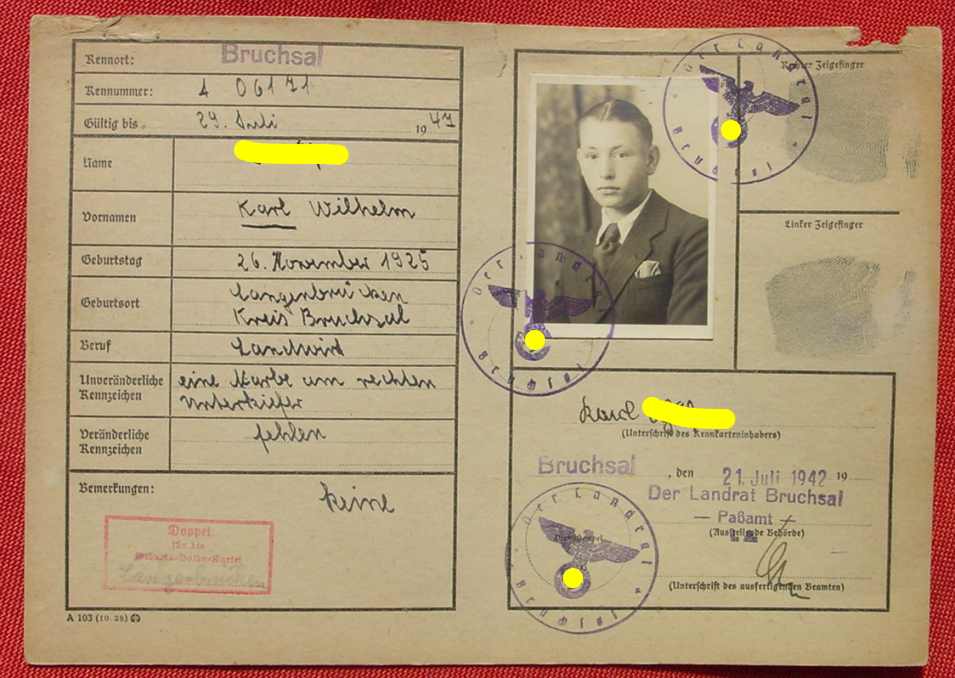 Kennort: Bruchsal
Kennummer: A 06171
Gültig bis 29. Juli 1947
Name
Vornamen Karl Wilhelm
Geburtstag 26. November 1925
Geburtsort Langenbrücken
Kreis Bruchsal
Beruf Landwirt
Unveränderliche Kennzeichen eine Narbe am rechten
Unterkiefer
Veränderliche Kennzeichen fehlen
Bemerkungen: keine
Doppel
für die
Langenbrücken
A 103 (10. 38)
Rechter Zeigefinger
Linker Zeigefinger
Der Landrat
Bruchsal
Der Landrat
Bruchsal
Karl
(Unterschrift des Kennkarteninhabers)
Bruchsal, den 21. Juli 1942 19
Der Landrat Bruchsal
— Paßamt —
(Ausstellende Behörde)
Der Landrat
Bruchsal
(Unterschrift des ausfertigenden Beamten)